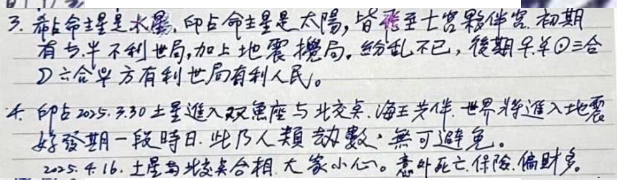 3. 希占命主星是水星,印占命主星是太陽,皆飛至七宮夥伴宮 初期
有与半不利世局,加上地震攪局。紛乱不已,後期早羊⊙三合
☽六合半方有利世局有利人民。
4. 印占2025.3.30土星進入双魚座与北交矣.海王共伴.世界將進入地震
好發期一段時日.此乃人類劫數,無可避免。
2025.4.16.土星与北交矣合相.大家小心。意外死亡.保險.偏財多。